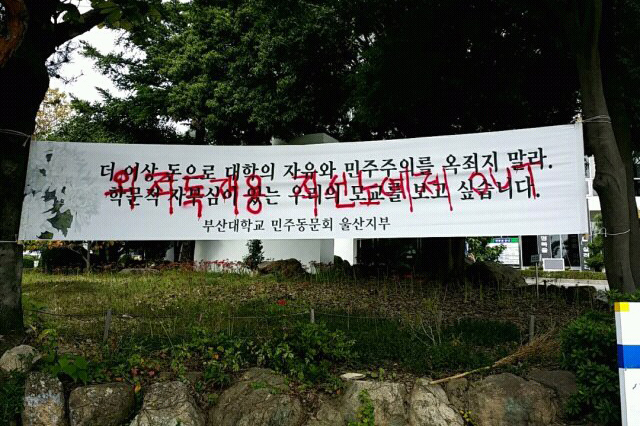 더 이상 돈으로 대학의 자유와 민주주의를 옥죄지 말라.
학문적 자부심이 있는 우리의 모교를 보고 싶습니다.
부산대학교 민주동문회 울산지부
외주독재용 직선노예제 OUT